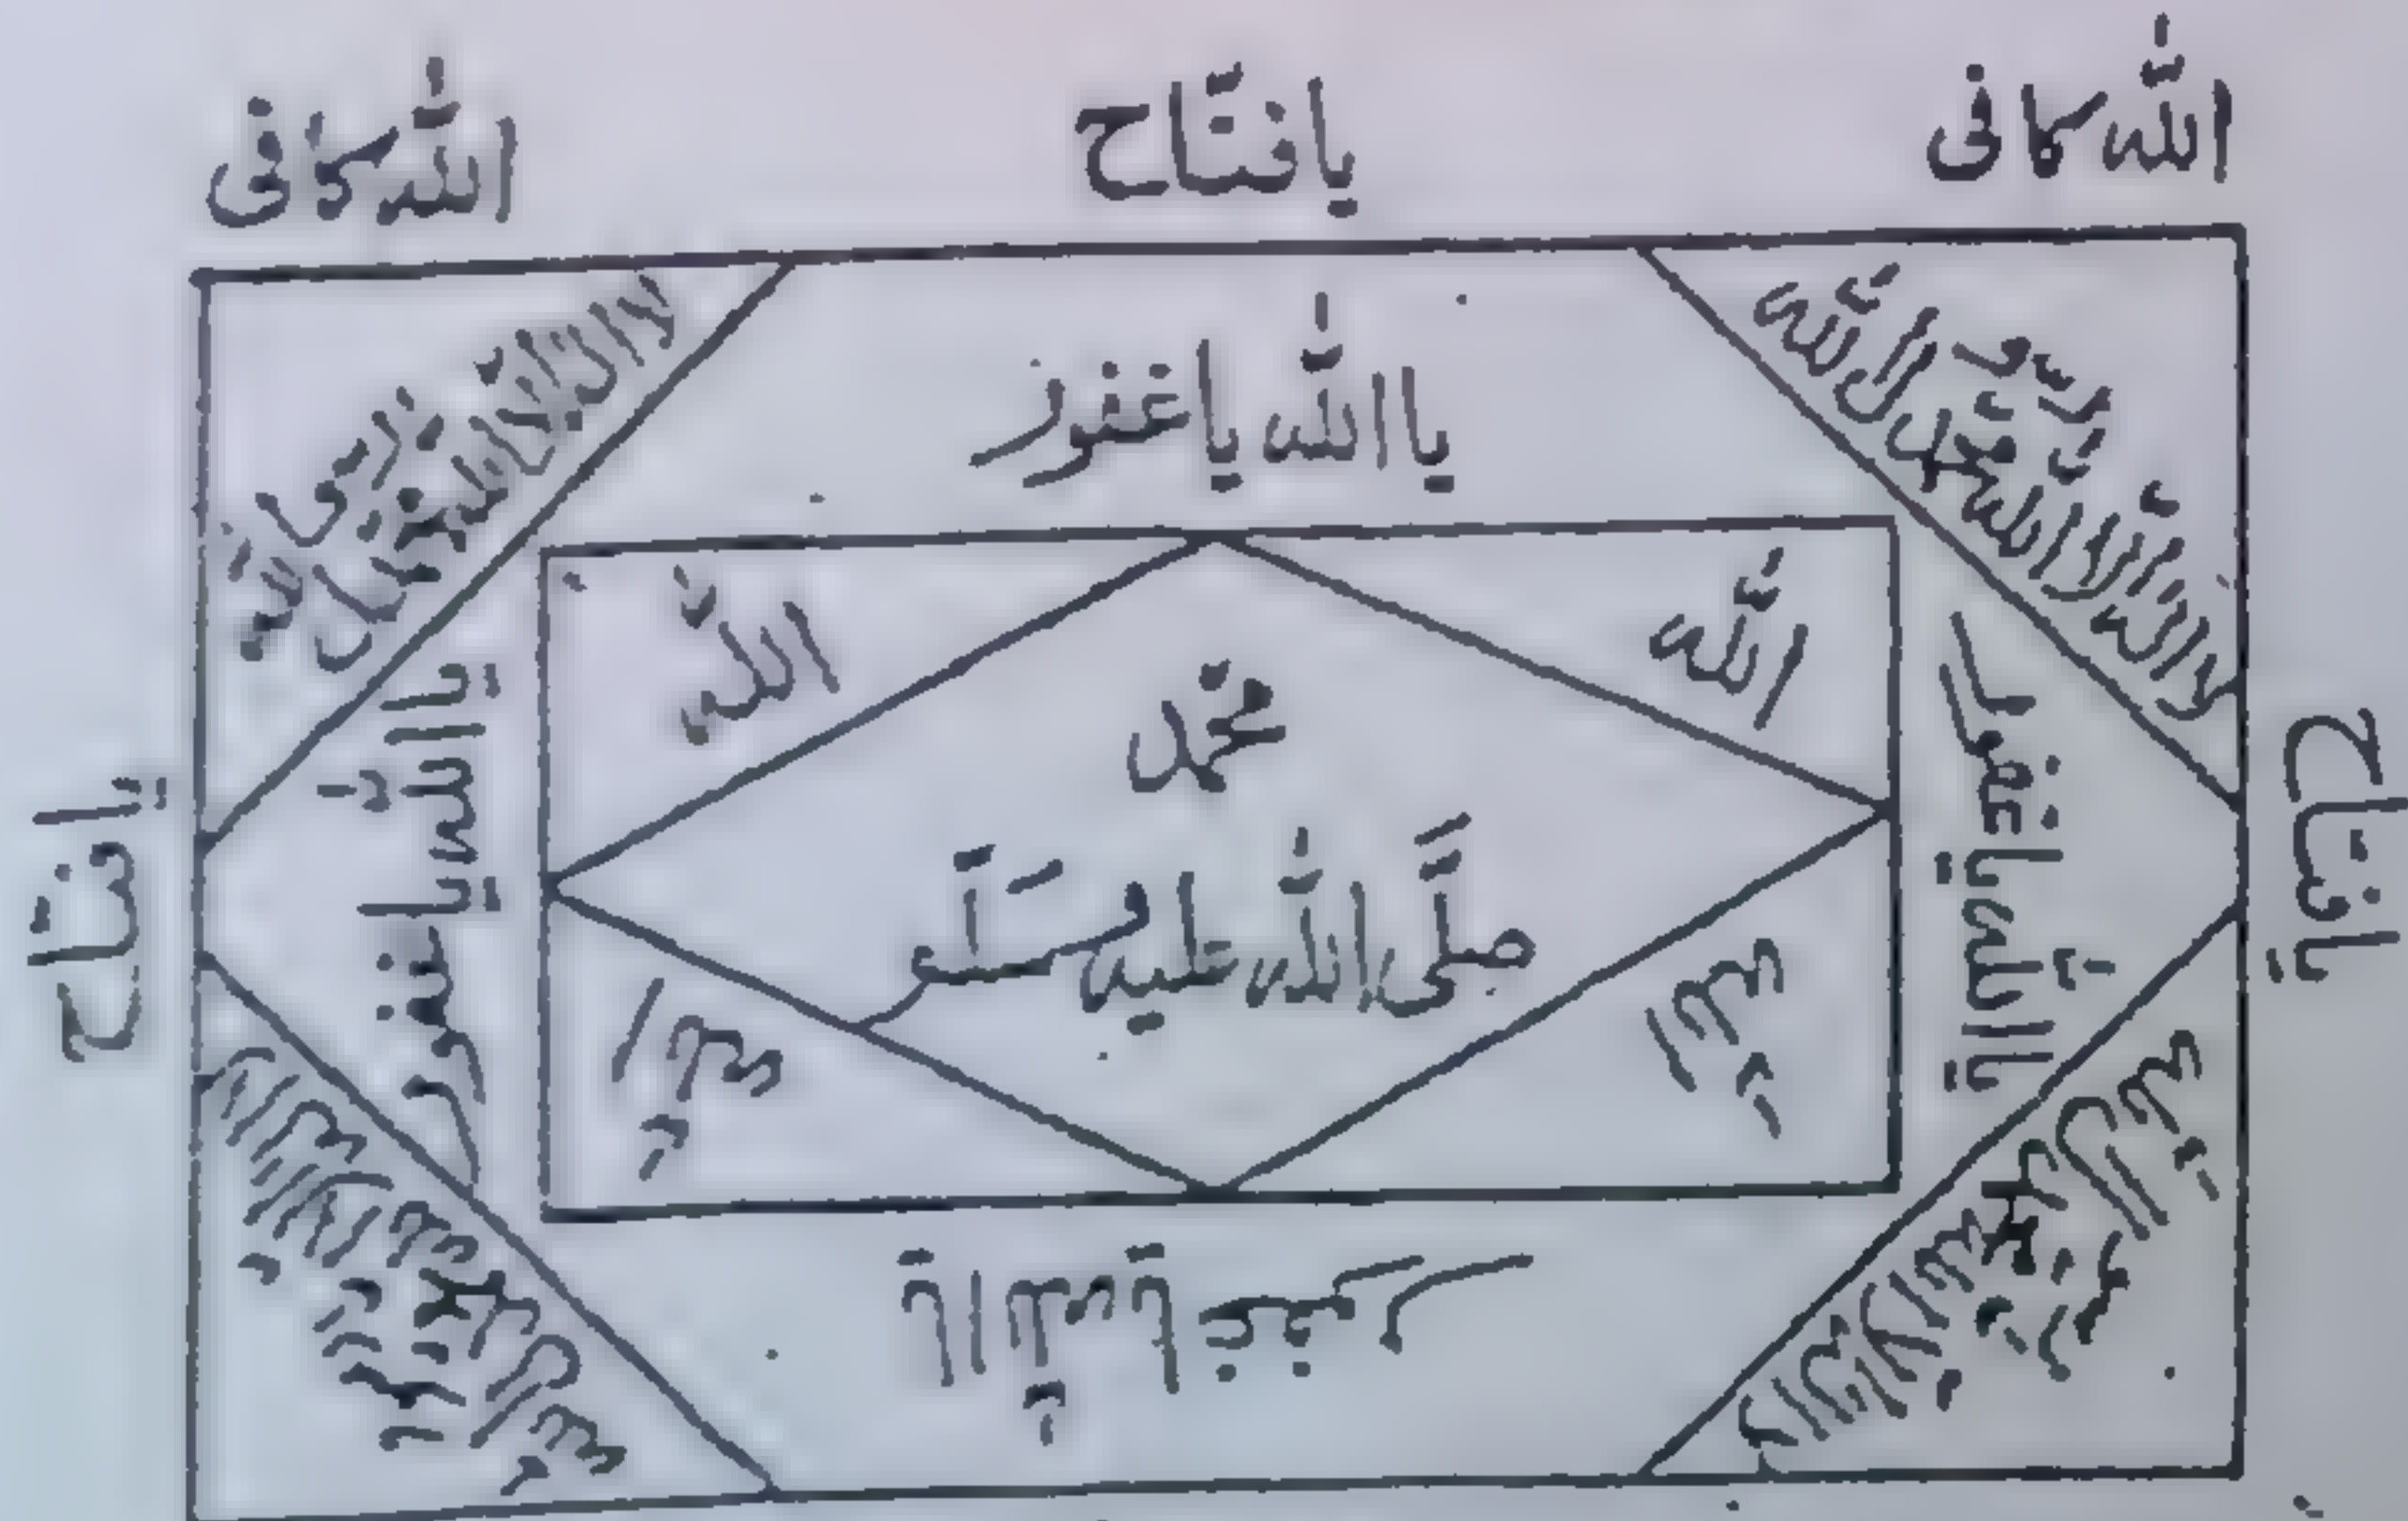 اللّٰه کافی
یا فتّاح
اللّٰه کافی
لا الٰه الا اللّٰه محمّد رسول اللّٰه
یا اللّٰه یا غفور
لا الٰه الّا اللّٰه محمّد رسول اللّٰه
اللّٰه
اللّٰه
یا فتّاح
یا اللّٰه یا غفور
محمّد
صلَّی اللّٰه علیه وسَلَّم
یا اللّٰه یا غفور
یا فتاح
اللّٰه
اللّٰه
لا الٰه الا اللّٰه محمّد رسول اللّٰه
یا اللّٰه یا غفور
لا الٰه الا اللّٰه محمّد رسول اللّٰه